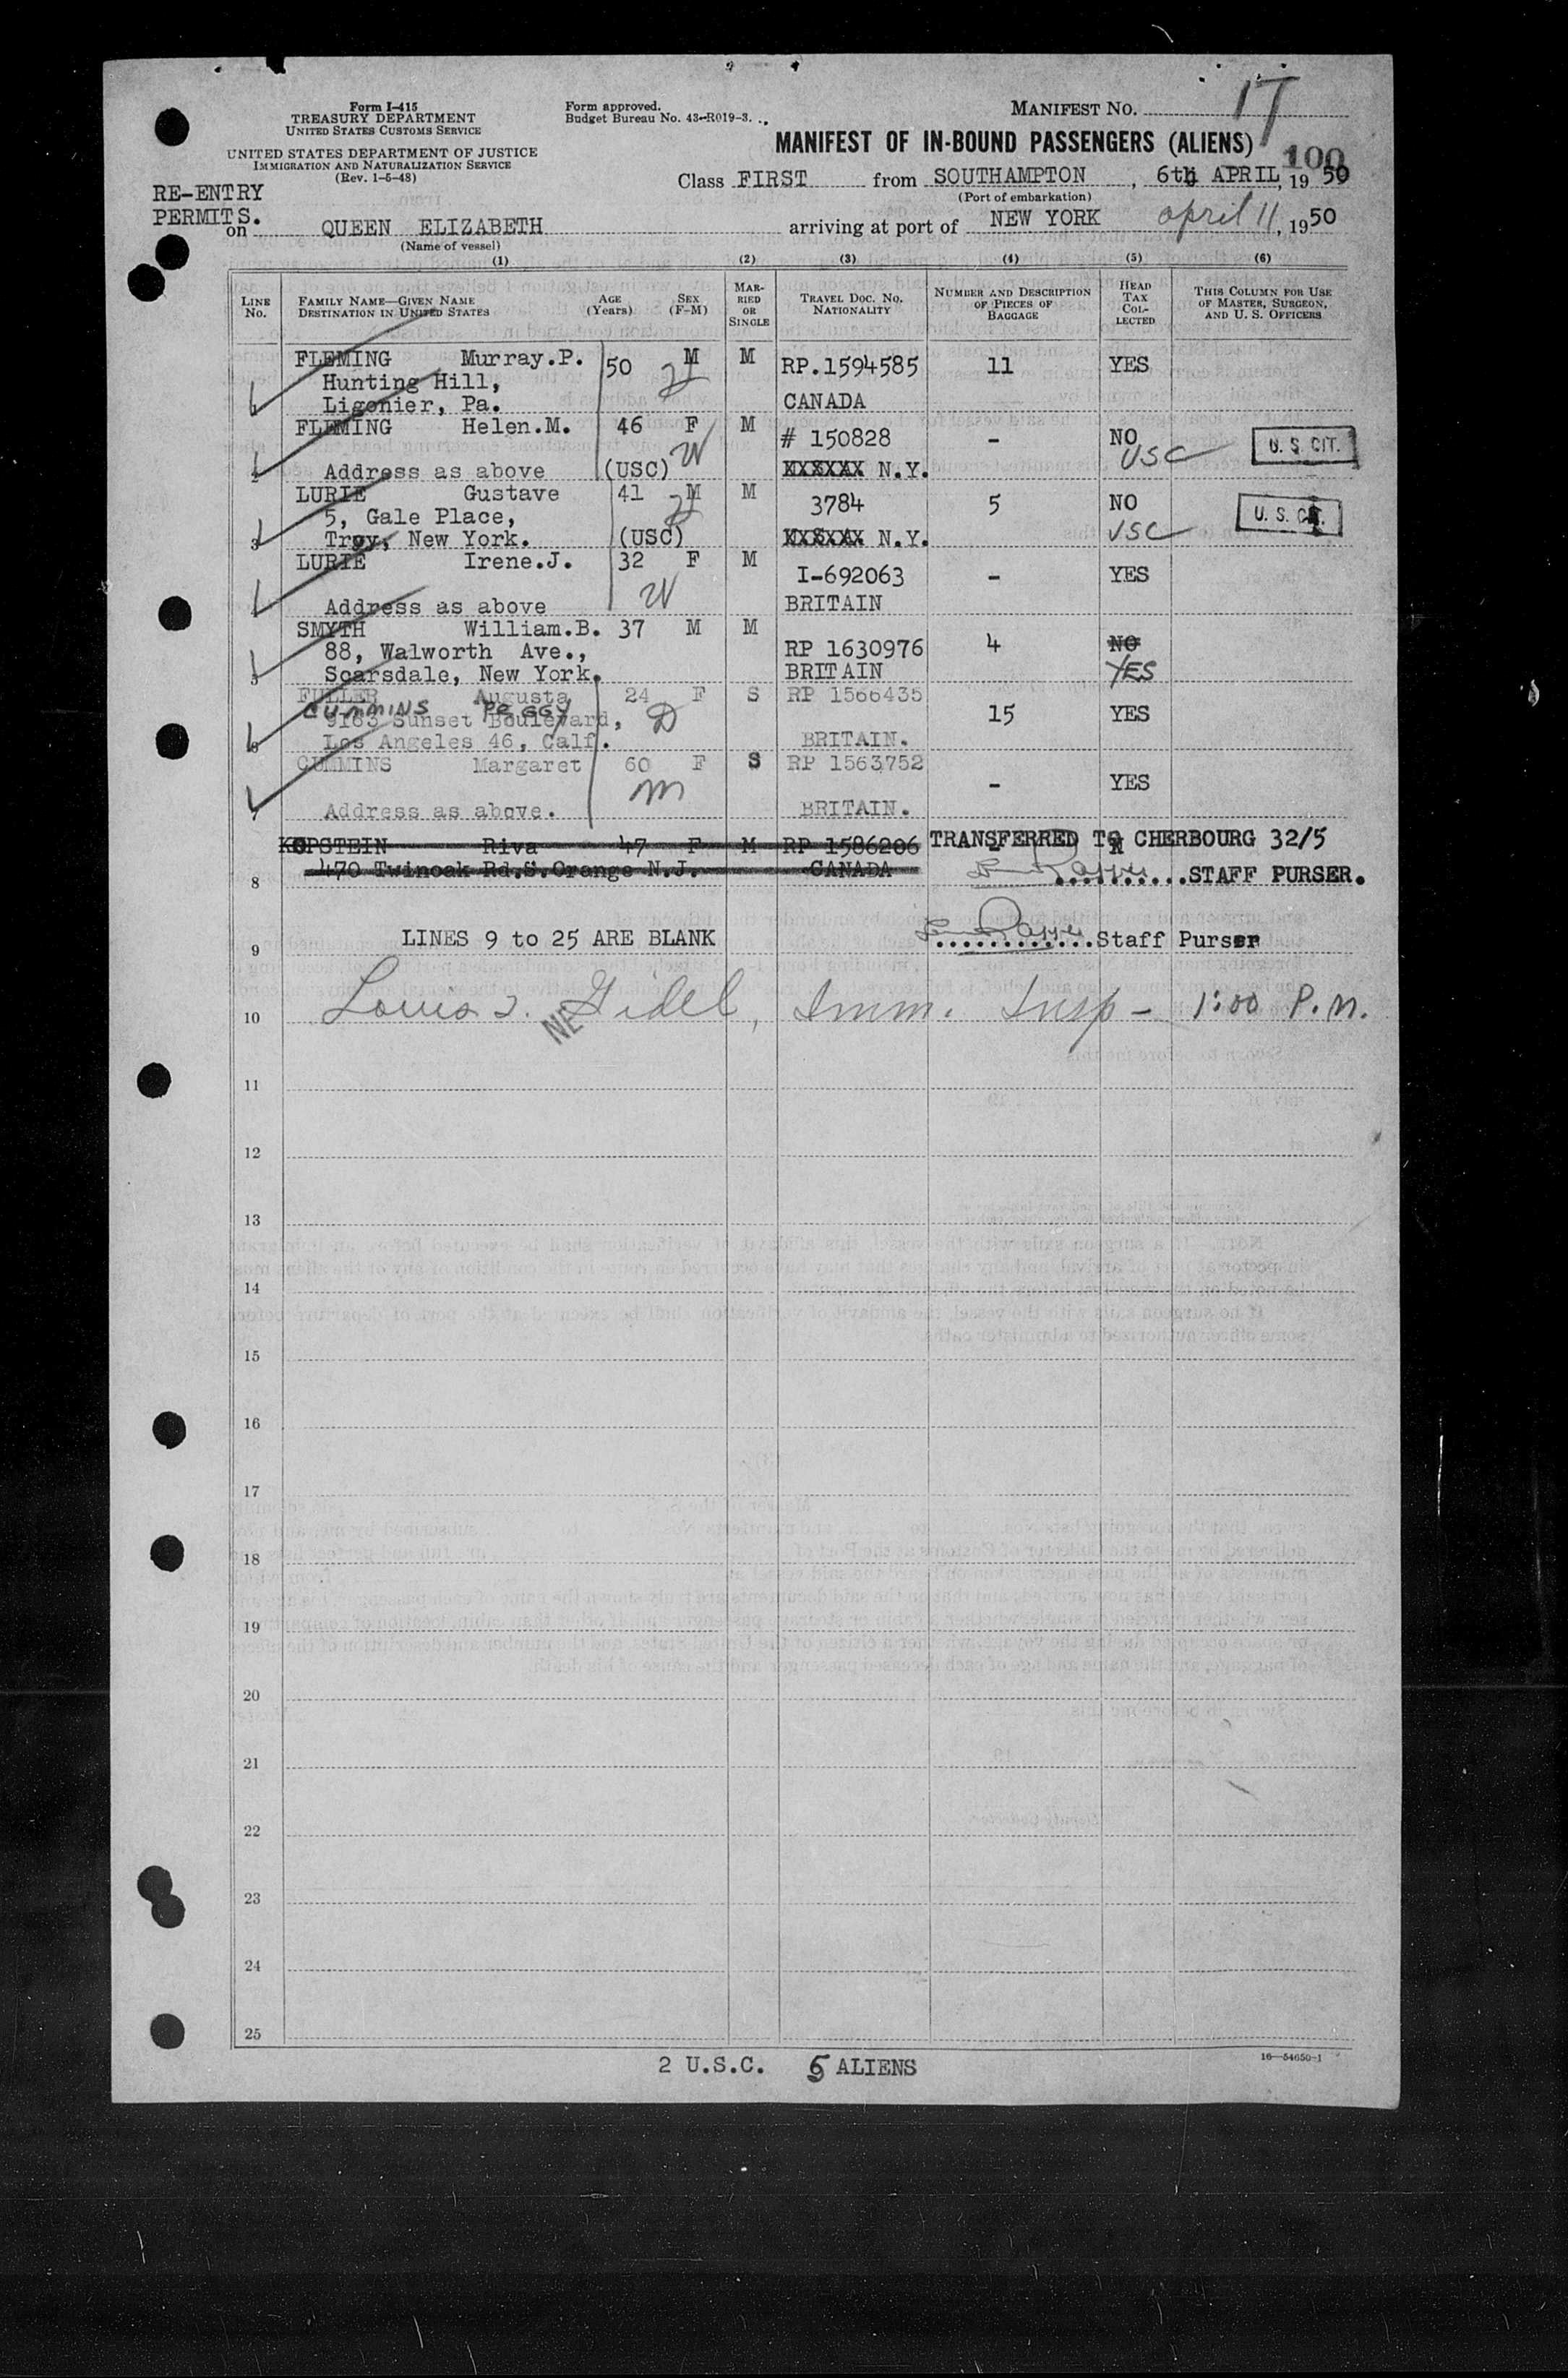 Form I-415
TREASURY DEPARTMENT
UNITED STATES CUSTOMS SERVICE
UNITED STATES DEPARTMENT OF JUSTICE
IMMIGRATION AND NATURALIZATION SERVICE
(Rev. 1-5-48)
Form approved.
Budget Bureau No. 43-R019-3.
MANIFEST No. 17
MANIFEST OF IN-BOUND PASSENGERS (ALIENS)
100
Class FIRST from SOUTHAMPTON, 6th APRIL, 1950
(Port of embarkation)
RE-ENTRY
PERMITS.
on QUEEN ELIZABETH arriving at port of NEW YORK April 11, 1950
(Name of vessel)
(1) (2) (3) (4) (5) (6)
LINE No. FAMILY NAME—GIVEN NAME DESTINATION IN UNITED STATES AGE (Years) SEX (F-M) MARRIED OR SINGLE TRAVEL DOC. NO. NATIONALITY NUMBER AND DESCRIPTION OF PIECES OF BAGGAGE HEAD TAX COLLECTED THIS COLUMN FOR USE OF MASTER, SURGEON, AND U. S. OFFICERS
FLEMING Murray.P. 50 M M RP.1594585 11 YES
Hunting Hill,
1 Ligonier, Pa. CANADA
FLEMING Helen.M. 46 F M # 150828 - NO
W USC U. S. CIT.
2 Address as above (USC) XXXXXX N.Y.
LURIE Gustave 41 M M 3784 5 NO
5, Gale Place, U. S. CIT.
3 Troy, New York. (USC) XXXXXX N.Y. USC
LURIE Irene.J. 32 F M I-692063 - YES
4 Address as above W BRITAIN
SMYTH William.B. 37 M M RP 1630976 4 NO
88, Walworth Ave.,
5 Scarsdale, New York. BRITAIN YES
FULLER Augusta 24 F S RP 1566435
CUMMINS PEGGY D 15 YES
9163 Sunset Boulevard,
6 Los Angeles 46, Calf. BRITAIN.
CUMMINS Margaret 60 F S RP 1563752
M - YES
7 Address as above. BRITAIN.
KOPSTEIN Riva 47 F M RP 1586206 - TRANSFERRED TO CHERBOURG 32/5
470 Twinoak Rd.S.Orange N.J. CANADA
8 ..........STAFF PURSER.
9 LINES 9 to 25 ARE BLANK ............Staff Purser
10 Louis J. Gidel, Imm. Insp - 1:00 P.M.
NE
11
12
13
14
15
16
17
18
19
20
21
22
23
24
25
2 U.S.C. 5 ALIENS
16—54650-1